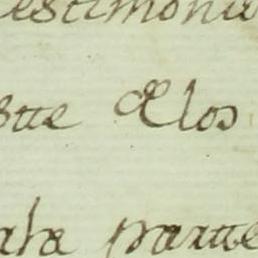 estimonio
stte delos
ala partte